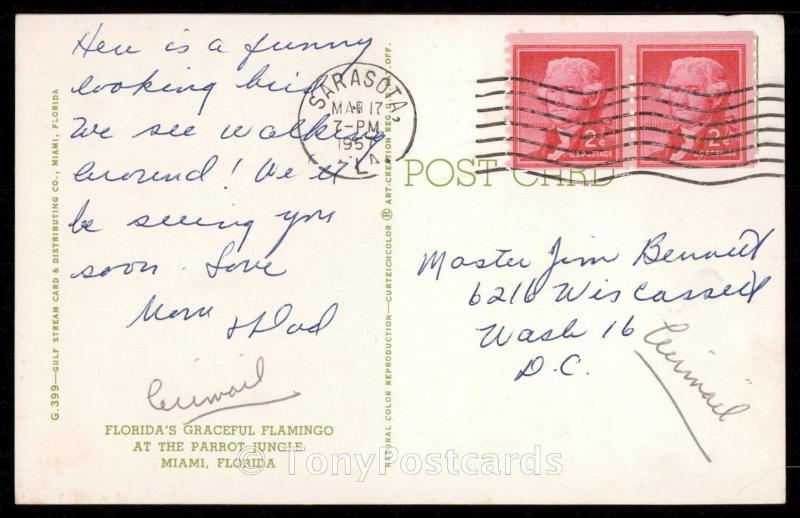 Here is a funny
looking bird
We see walking
around! We'll
be seeing you
soon. Love
Mom & Dad
Airmail
FLORIDA'S GRACEFUL FLAMINGO
AT THE PARROT JUNGLE
MIAMI, FLORIDA
G.399—GULF STREAM CARD & DISTRIBUTING CO., MIAMI, FLORIDA
NATURAL COLOR REPRODUCTION—CURTEICHCOLOR ® ART-CREATION REG. U.S. PAT. OFF.
SARASOTA,
MAR 17
7-PM
195
FLA.
POST CARD
2¢
U.S. POSTAGE
2¢
U.S. POSTAGE
Master Jim Bennett
6216 Wiscassett
Wash 16
D.C.
Airmail
© TonyPostcards